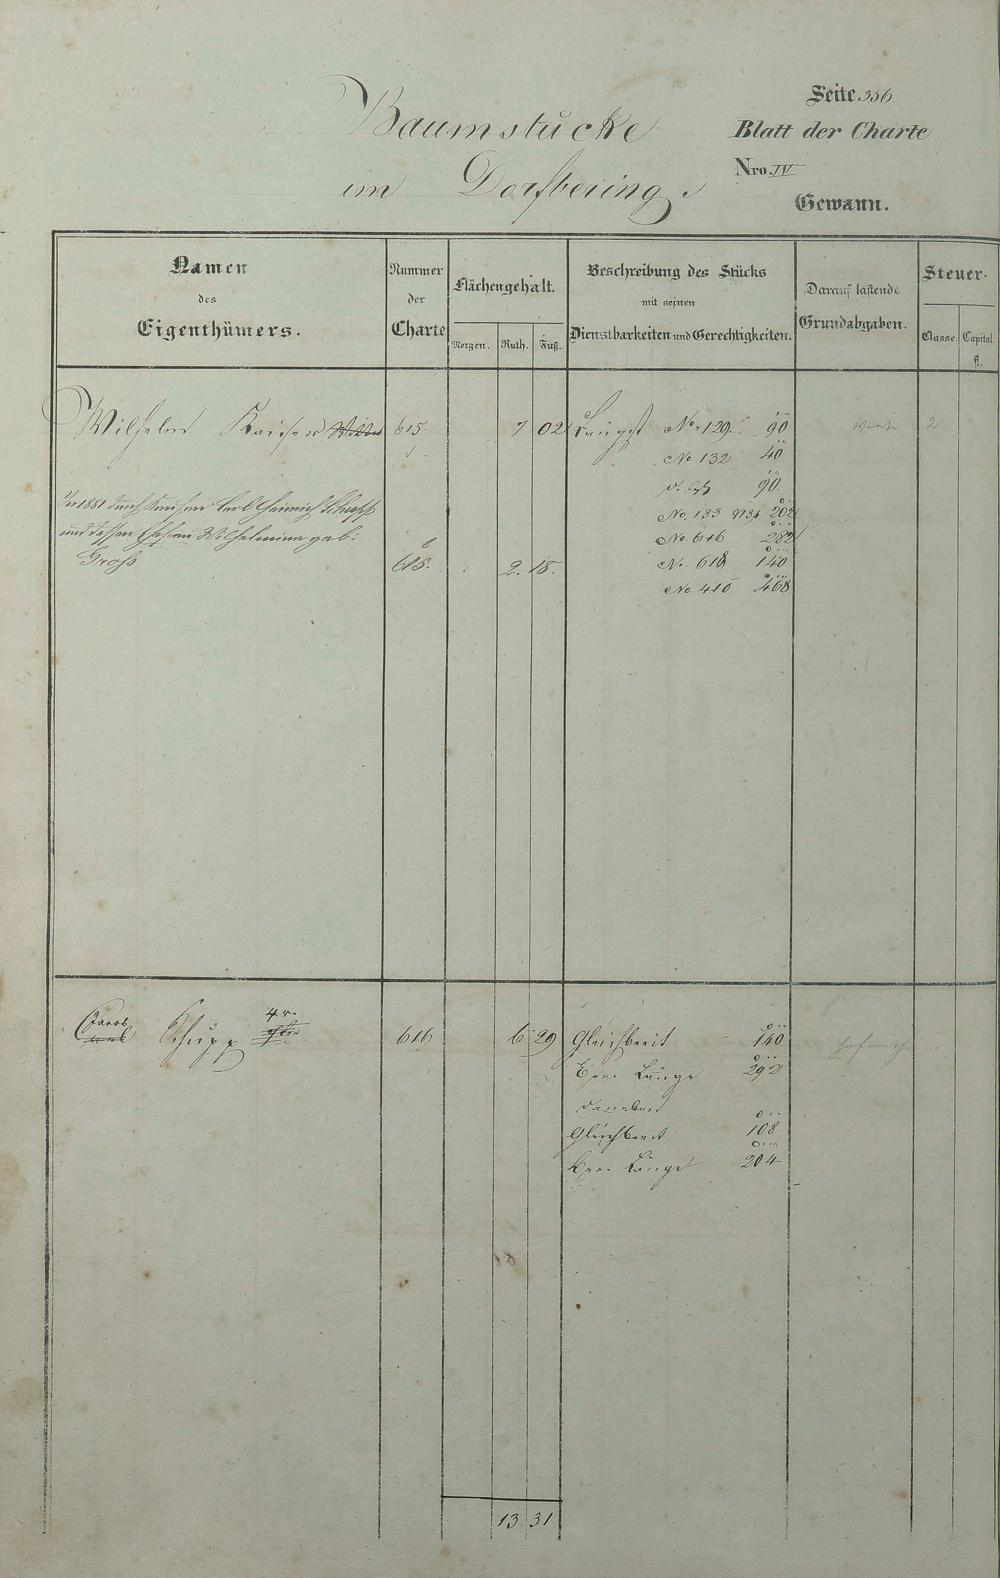 Seite 356
Baumstücke
Blatt der Charte
im Dorfbering.
Nro. IV
Gewann.
Namen
des
Eigenthümers.
Nummer
der
Charte
Flächengehalt.
Morgen. Ruth. Fuß.
Beschreibung des Stücks
mit seinen
Dienstbarkeiten und Gerechtigkeiten.
Darauf lastende
Grundabgaben.
Steuer-
Classe. Capital.
fl.
Wilhelm Kaiser 615. 7 02 Längst No. 129. 90 2
No. 132 40
90
In 1881 durch Kauf an Carl Heinrich Schupp
No. 133 202
und dessen Ehefrau Wilhelmine geb:
No. 646 282
Groß
615. 2. 18.
No. 618 140
No. 410 468
Jacob Schupp 4r. 616 6 29 Gleichbreit 140
Länge 292
daneben
Gleichbreit 108
Länge 204
13 31